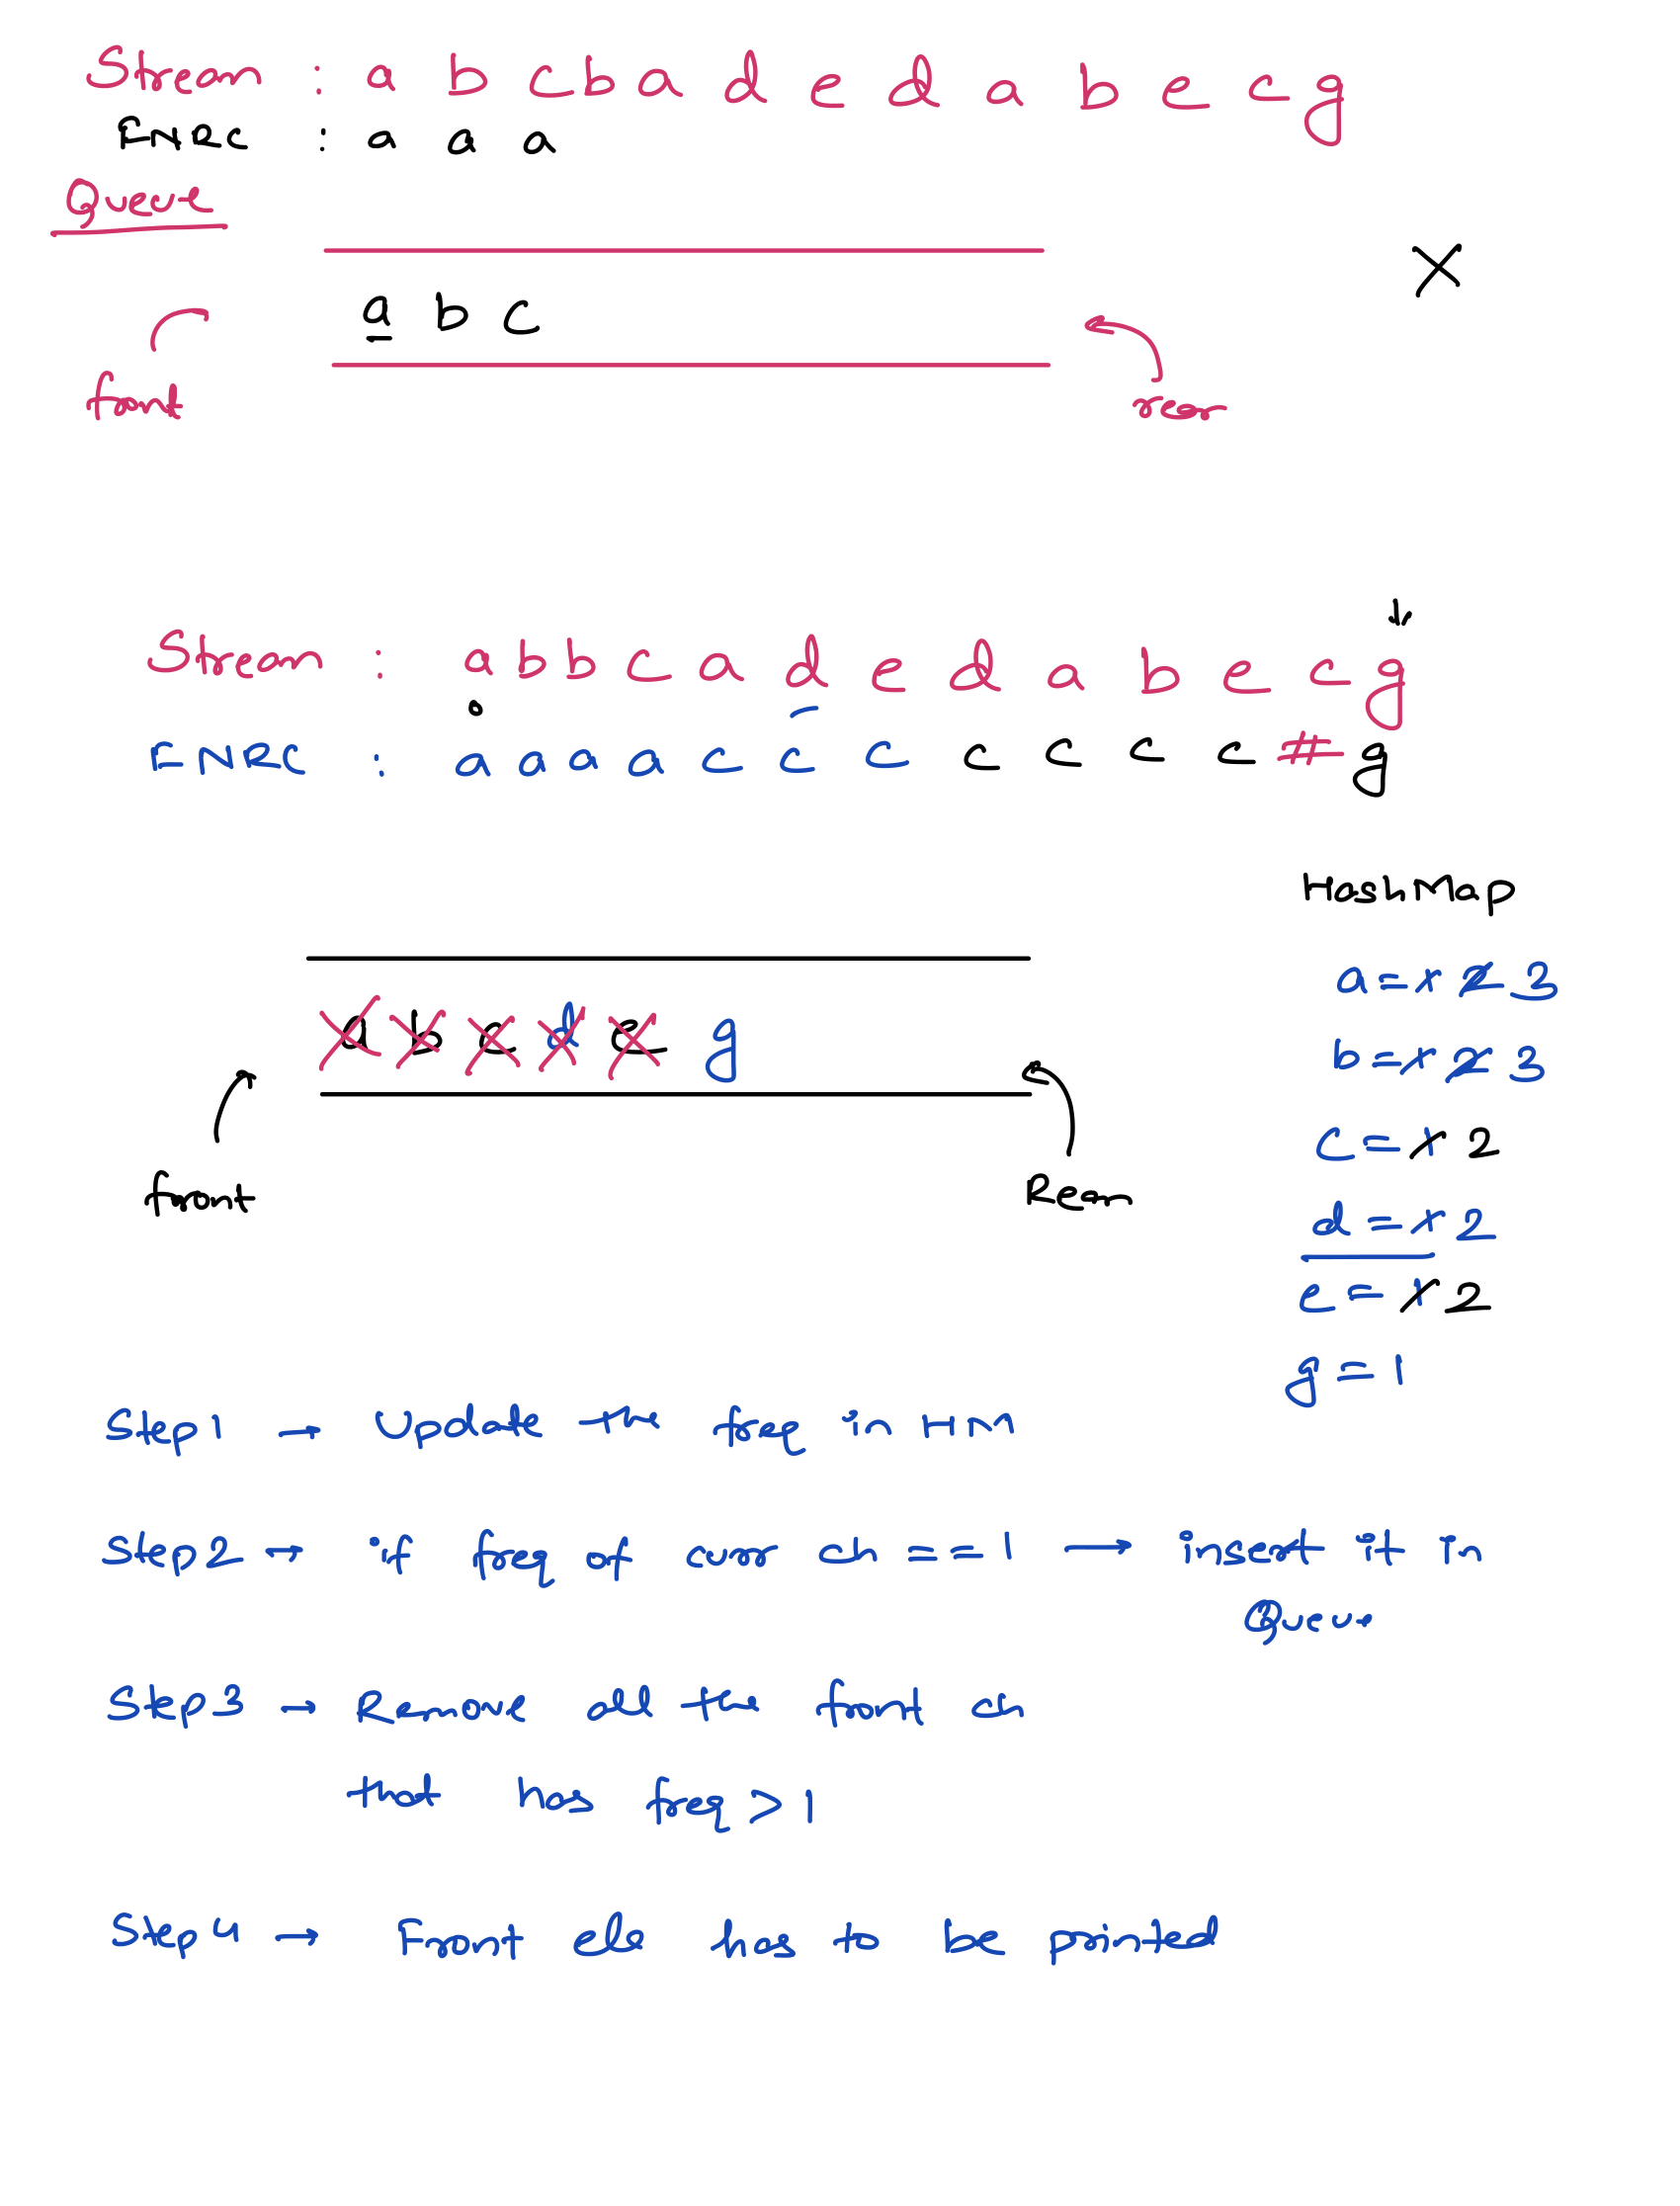 Stream : a b c b a d e d a b e c g
FNRC : a a a
Queue
a b c
X
front
rear
Stream : a b b c a d e d a b e c g
FNRC : a a a a c c c c c c c # g
HashMap
a = 1 2 3
a b c d e g
b = 1 2 3
c = 1 2
front
Rear
d = 1 2
e = 1 2
g = 1
Step1 → Update the freq in HM
Step2 → if freq of curr ch == 1 → insert it in
Queue
Step3 → Remove all the front ch
that has freq > 1
Step4 → Front ele has to be printed